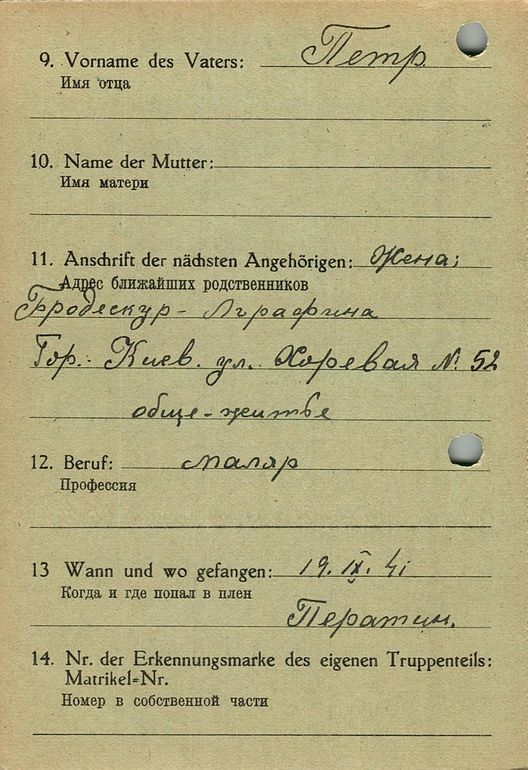 9. Vorname des Vaters: Петр.
Имя отца
10. Name der Mutter:
Имя матери
11. Anschrift der nächsten Angehörigen: Жена;
Адрес ближайших родственников
Бродескур - Аграфина
Гор. Киев. ул. Хоревая №. 52
обще-житье
12. Beruf: маляр
Профессия
13 Wann und wo gefangen: 19. IX. 41
Когда и где попал в плен
Ператин.
14. Nr. der Erkennungsmarke des eigenen Truppenteils:
Matrikel=Nr.
Номер в собственной части